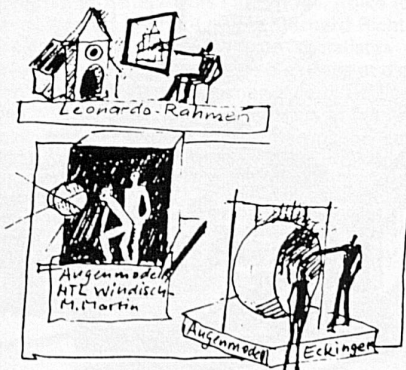 Leonardo-Rahmen
Augenmodell
HTL Windisch
M. Martin
Augenmodell
Eckinger